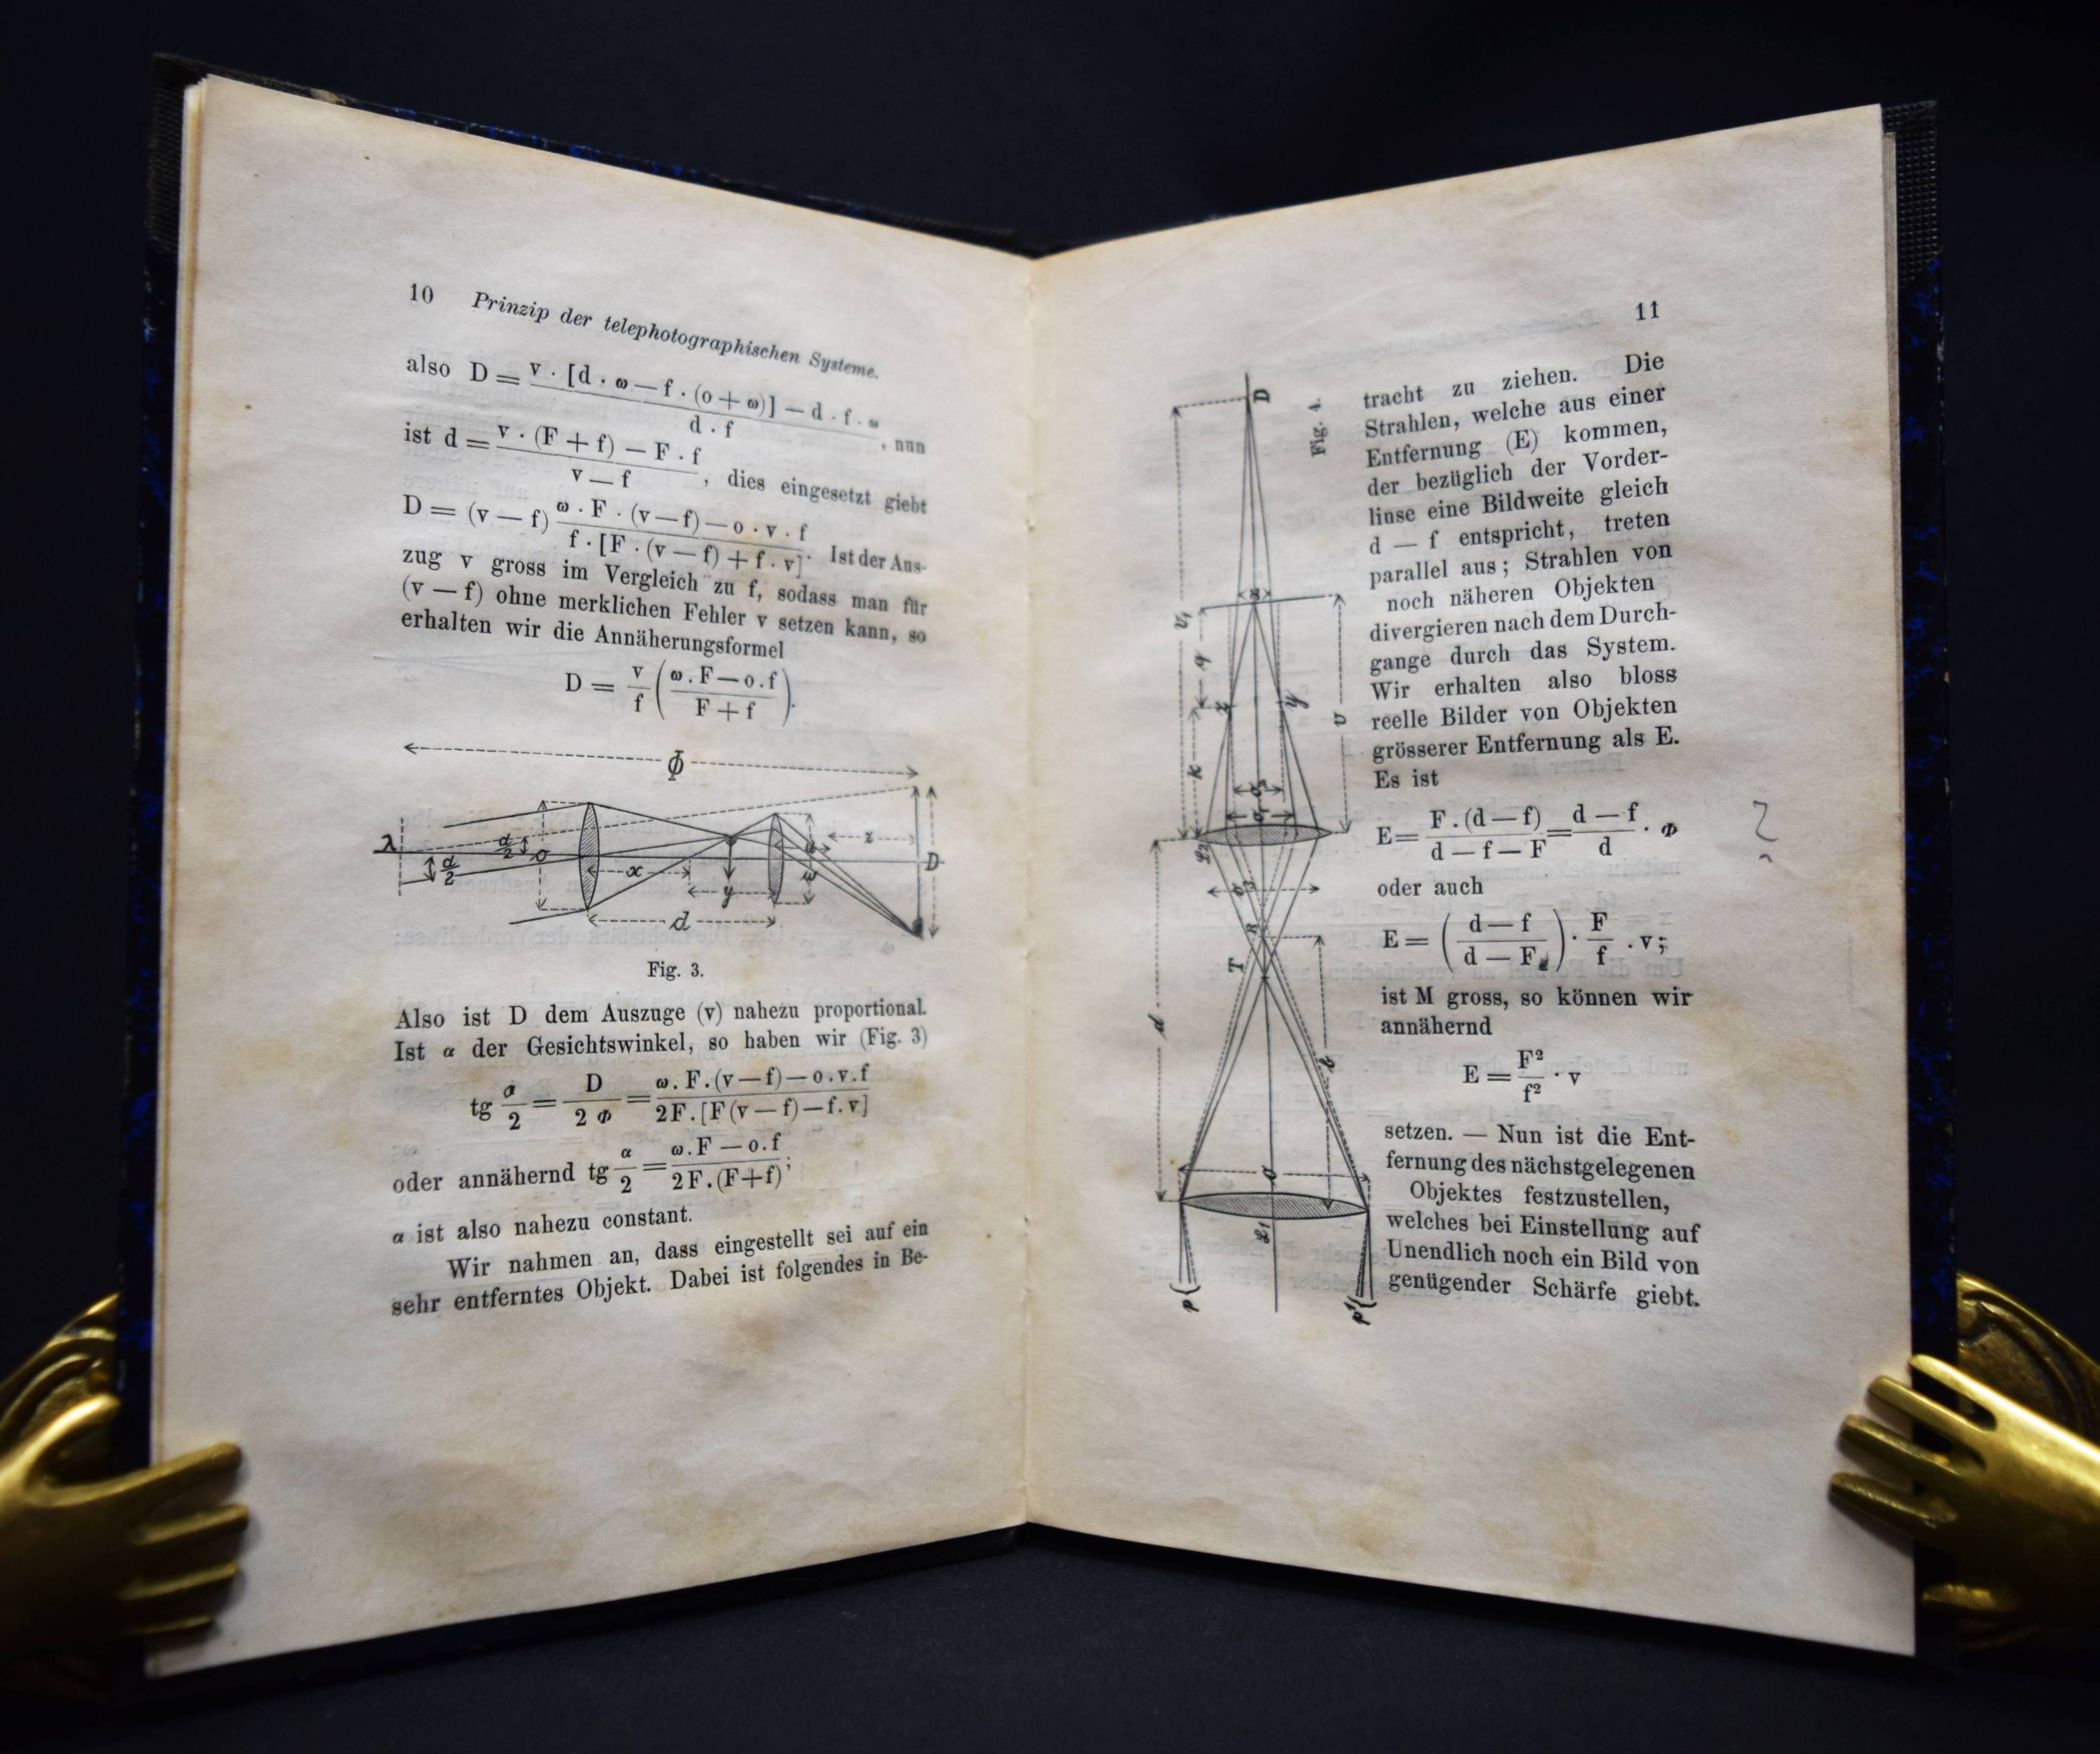 10 Prinzip der telephotographischen Systeme.
also D = v · [d · ω — f · (o + ω)] — d · f · ω / d · f , nun
ist d = v · (F + f) — F · f / v — f , dies eingesetzt giebt
D = (v — f) ω · F · (v — f) — o · v · f / f · [F · (v — f) + f · v] . Ist der Aus-
zug v gross im Vergleich zu f, sodass man für
(v — f) ohne merklichen Fehler v setzen kann, so
erhalten wir die Annäherungsformel
D = v / f ( ω . F — o . f / F + f ).
Φ
λ α/2 α/2 o x y d z D
Fig. 3.
Also ist D dem Auszuge (v) nahezu proportional.
Ist α der Gesichtswinkel, so haben wir (Fig. 3)
tg α / 2 = D / 2 Φ = ω . F . (v — f) — o . v . f / 2F . [F (v — f) — f . v]
oder annähernd tg α / 2 = ω . F — o . f / 2 F . (F + f) ;
α ist also nahezu constant.
Wir nahmen an, dass eingestellt sei auf ein
sehr entferntes Objekt. Dabei ist folgendes in Be-
11
Fig. 4.
D
v₁
q
y
v
k
L₂
R
T
d
L₁
p
p'
tracht zu ziehen. Die
Strahlen, welche aus einer
Entfernung (E) kommen,
der bezüglich der Vorder-
linse eine Bildweite gleich
d — f entspricht, treten
parallel aus; Strahlen von
noch näheren Objekten
divergieren nach dem Durch-
gange durch das System.
Wir erhalten also bloss
reelle Bilder von Objekten
grösserer Entfernung als E.
Es ist
E = F . (d — f) / d — f — F = d — f / d · Φ
?
oder auch
E = ( d — f / d — F ) · F / f . v ;
ist M gross, so können wir
annähernd
E = F² / f² · v
setzen. — Nun ist die Ent-
fernung des nächstgelegenen
Objektes festzustellen,
welches bei Einstellung auf
Unendlich noch ein Bild von
genügender Schärfe giebt.